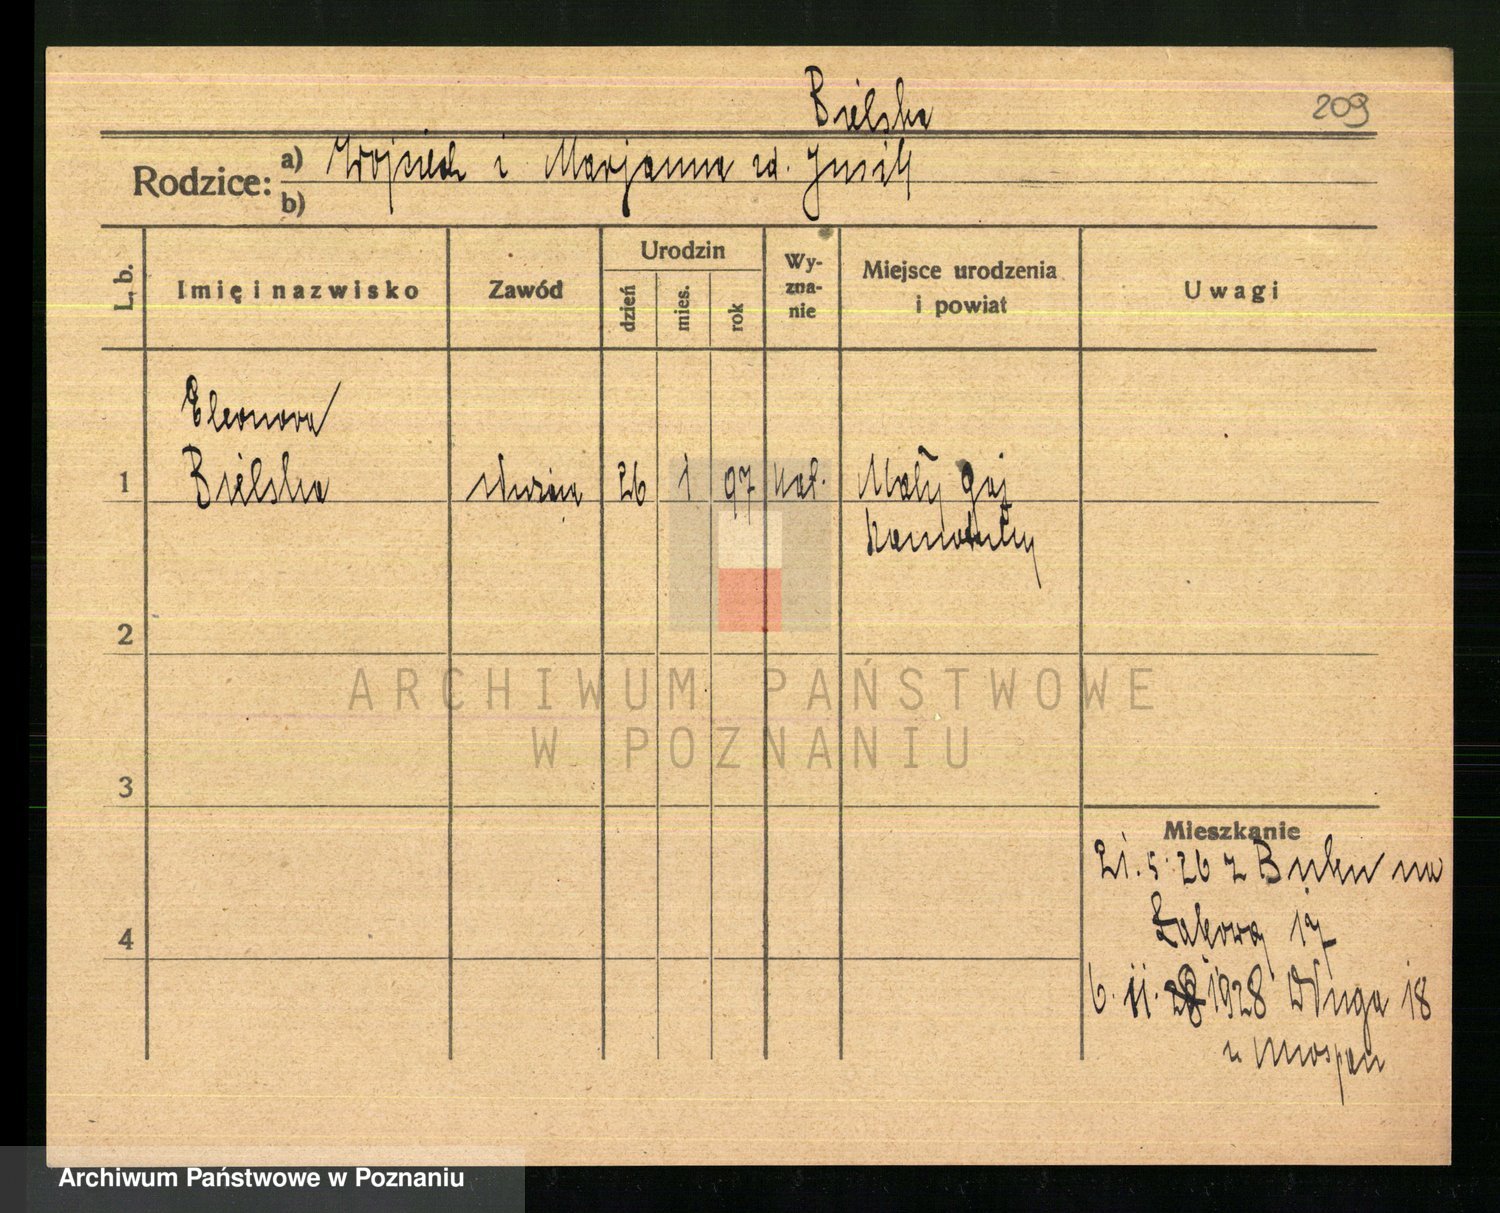 Bielska
209
Rodzice: a) Wojciech i Marjanna zd.
b)
L. b.
Imię i nazwisko
Zawód
Urodzin
dzień
mies.
rok
Wy-
zna-
nie
Miejsce urodzenia
i powiat
Uwagi
Eleonora
1 Bielska służąca 26 1 97 kat. Mały Gaj
2
ARCHIWUM PAŃSTWOWE
W POZNANIU
3
Mieszkanie
21.5.26 z Buku na
4
Łąkową 17
6.11. 1928 Długa 18
u
Archiwum Państwowe w Poznaniu